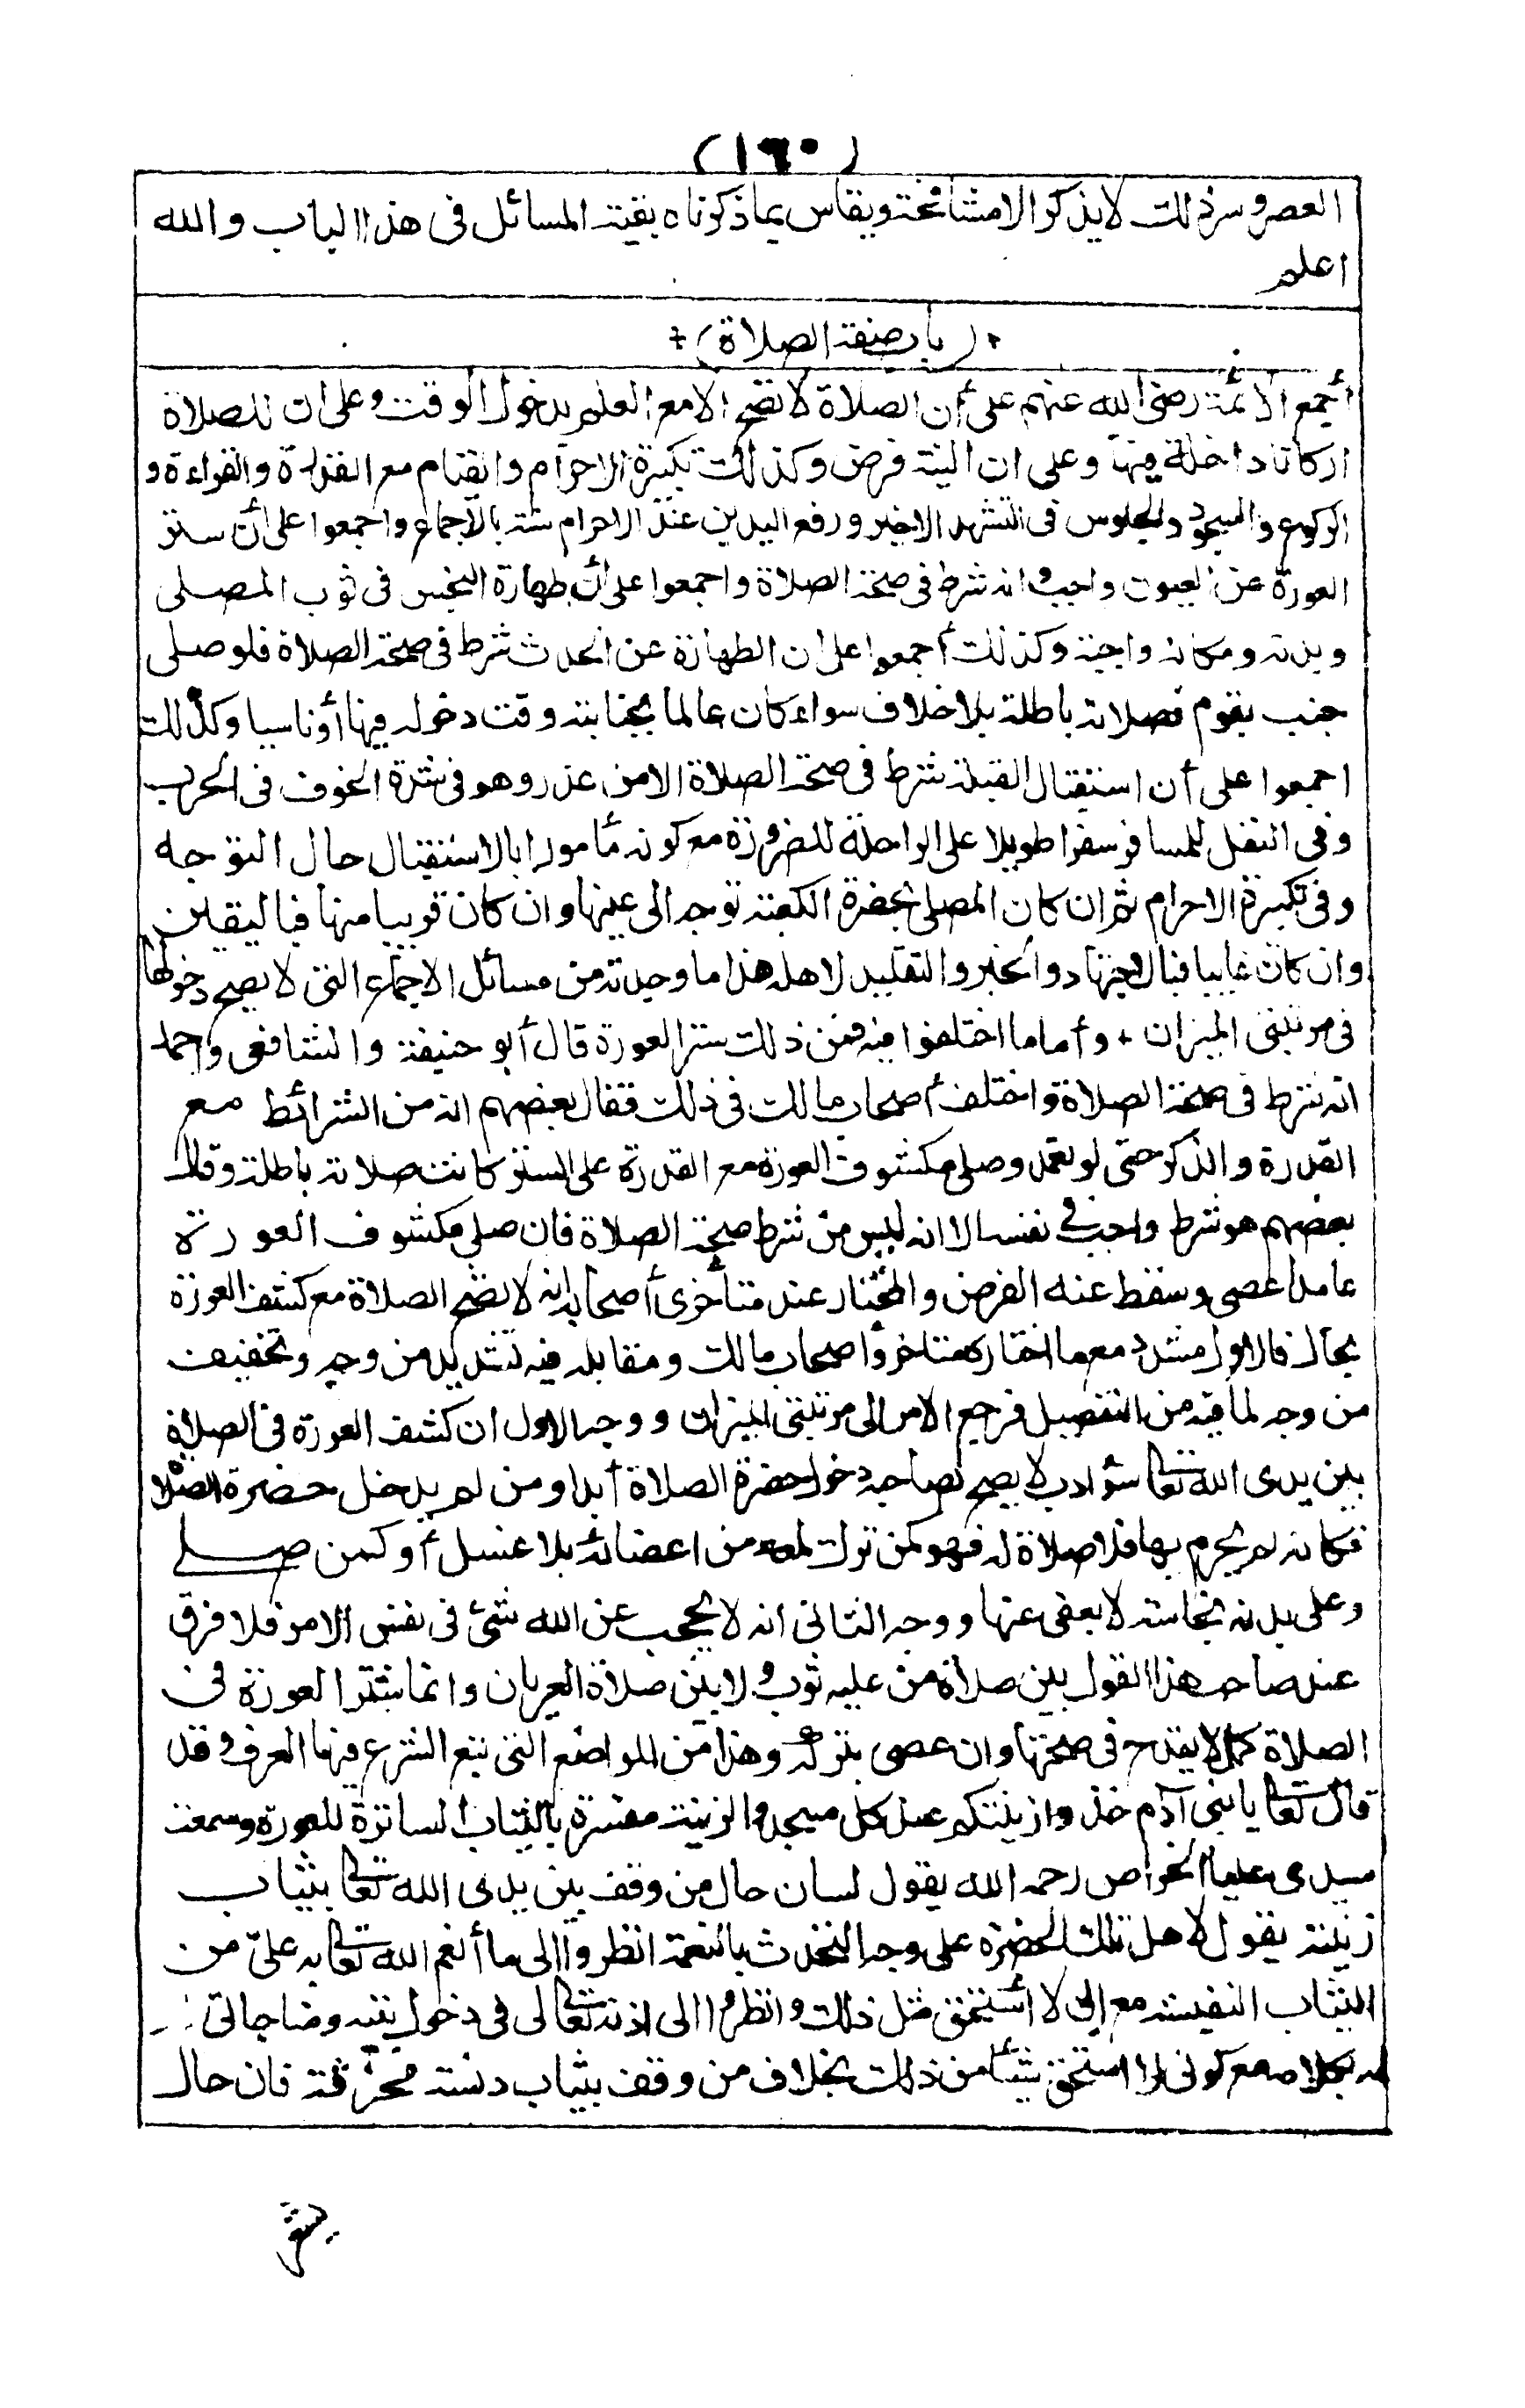 (١٦٠)
العصر وسر ذلك لا يذكر الا مشافهة ويقاس بما ذكرناه بقية المسائل فى هذا الباب والله
اعلم
(باب صفة الصلاة)
أجمع الأئمة رضى الله عنهم على أن الصلاة لا تصح الا مع العلم بدخول الوقت وعلى ان للصلاة
اركانا داخلة فيها وعلى ان النية فرض وكذلك تكبيرة الاحرام والقيام مع القدرة والقراءة و
الركوع والسجود والجلوس فى التشهد الاخير ورفع اليدين عند الاحرام سنة بالاجماع واجمعوا على أن ستر
العورة عن العيون واجب وانه شرط فى صحة الصلاة واجمعوا على أن طهارة النجس فى ثوب المصلى
وبدنه ومكانه واجبة وكذلك أجمعوا على ان الطهارة عن الحدث شرط فى صحة الصلاة فلو صلى
جنب بقوم فصلاته باطلة بلا خلاف سواء كان عالما بجنابته وقت دخوله فيها أو ناسيا وكذلك
اجمعوا على أن استقبال القبلة شرط فى صحة الصلاة الا من عذر وهو فى شدة الخوف فى الحرب
وفى النفل للمسافر سفرا طويلا على الراحلة للضرورة مع كونه مأمورا بالاستقبال حال التوجه
وفى تكبيرة الاحرام ثم ان كان المصلى بحضرة الكعبة توجه الى عينها وان كان قريبا منها فباليقين
وان كان غايبا فبالاجتهاد والخبر والتقليد لاهله هذا ما وجدته من مسائل الاجماع التى لا يصح دخولها
فى مرتبتى الميزان + وأما ما اختلفوا فيه فمن ذلك ستر العورة قال أبو حنيفة والشافعى واحمد
انه شرط فى صحة الصلاة واختلف أصحاب مالك فى ذلك فقال بعضهم انه من الشرائط مع
القدرة والذكر حتى لو تعمد وصلى مكشوف العورة مع القدرة على الستر كانت صلاته باطلة وقال
بعضهم هو شرط واجب فى نفسه الا انه ليس من شرط صحة الصلاة فان صلى مكشوف العورة
عامدا عصى وسقط عنه الفرض والمختار عند متأخرى أصحابه انه لا تصح الصلاة مع كشف العورة
بحال فالاول مشدد مع ما اختاره متأخروا اصحاب مالك ومقابله فيه تشديد من وجه وتخفيف
من وجه لما فيه من التفصيل فرجع الامر الى مرتبتى الميزان ووجه الاول ان كشف العورة فى الصلاة
بين يدى الله تعا سؤ ادب لا يصح لصاحبه دخول حضرة الصلاة أبدا ومن لم يدخل حضرة الصلاة
فكانه لم يحرم بها فلا صلاة له فهو كمن ترك لمعة من اعضائه بلا غسل أو كمن صلى
وعلى بدنه نجاسة لا يعفى عنها ووجه الثانى انه لا يحجب عن الله شئ فى نفس الامر فلا فرق
عند صاحب هذا القول بين صلاة من عليه ثوب ولا بين صلاة العريان وانما ستر العورة فى
الصلاة كمال لا يقدح فى صحتها وان عصى بتركه وهذا من المواضع التى تبع الشرع فيها العرف وقد
قال تعا يا بنى آدم خذوا زينتكم عند كل مسجد والزينة مفسرة بالثياب الساترة للعورة وسمعت
سيدى عليا الخواص رحمه الله يقول لسان حال من وقف بين يدى الله تعا بثياب
زينة يقول لاهل تلك الحضرة على وجه التحدث بالنعمة انظروا الى ما أنعم الله تعا به علىّ من
الثياب النفيسة مع انى لا أستحق مثل ذلك وانظروا الى اذنه تعالى لى فى دخول بيته ومناجاتى
له بكلامه مع كونى لا استحق شيئا من ذلك بخلاف من وقف بثياب دنسة مخرقة فان حال